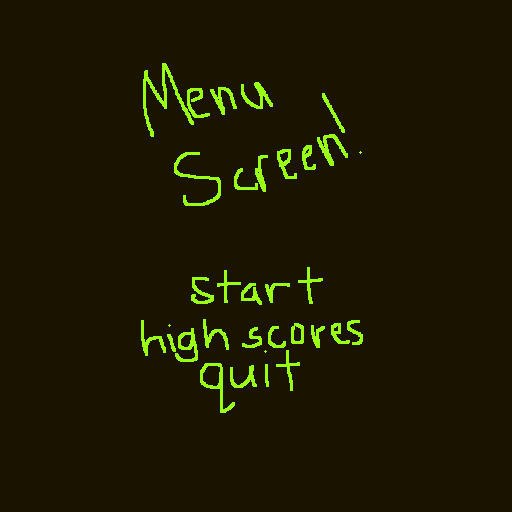 Menu
Screen!
start
high scores
quit